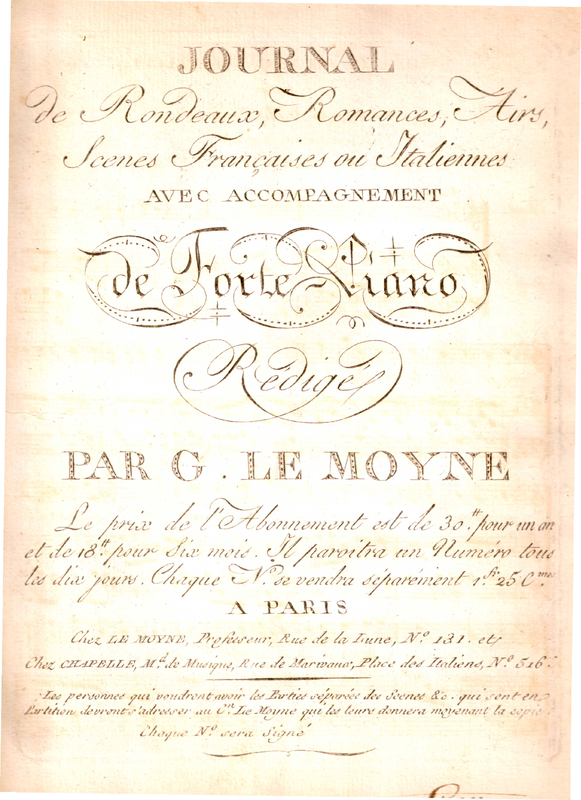 JOURNAL
de Rondeaux, Romances, Airs,
Scenes Françaises ou Italiennes
AVEC ACCOMPAGNEMENT
de Forte-Piano
Rédigé
PAR G. LE MOYNE
Le prix de l'Abonnement est de 30.tt pour un an
et de 18tt pour Six mois. Il paroitra un Numéro tous
les dix jours. Chaque No. se vendra séparément 1.fr 25 Cmes
A PARIS
Chez LE MOYNE, Professeur, Rue de la Lune, No. 131. et
Chez CHAPELLE, Md. de Musique, Rue de Marivaux, Place des Italiens, No. 316.
Les personnes qui voudront avoir les Parties séparées des Scenes &c. qui sont en
Partition devront s'adresser au Cen. Le Moyne qui les leurs donnera moyenant la copie.
Chaque No. sera Signé